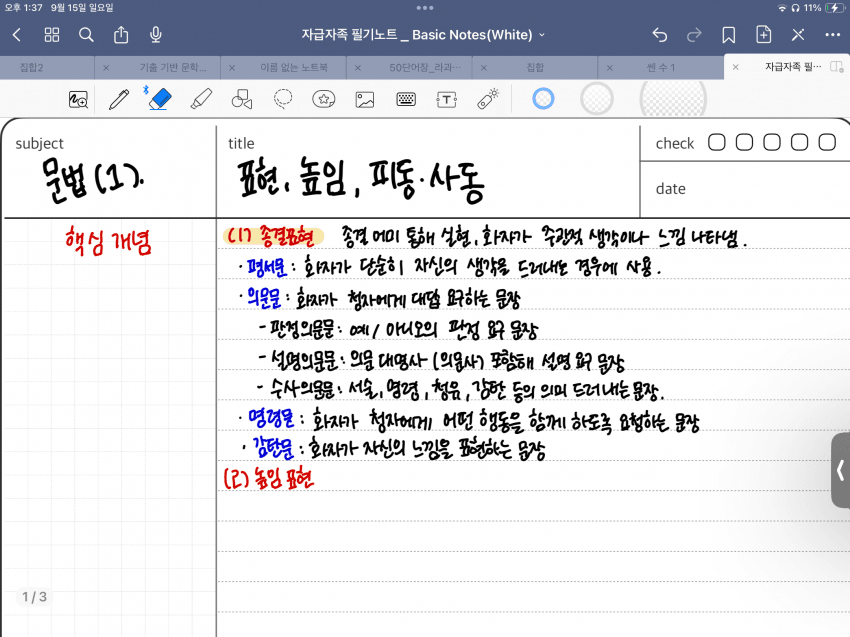 오후 1:37 9월 15일 일요일
11%
자급자족 필기노트 _ Basic Notes(White)
집합2
기출 기반 문학…
이름 없는 노트북
50단어장_라과…
집합
쎈 수 1
자급자족 필…
subject
title
check
문법 (1).
표현, 높임, 피동·사동
date
핵심 개념
(1) 종결표현 종결 어미 통해 실현, 화자가 주관적 생각이나 느낌 나타냄.
· 평서문 : 화자가 단순히 자신의 생각을 드러내는 경우에 사용.
· 의문문 : 화자가 청자에게 대답 요구하는 문장
- 판정의문문 : 예/아니오의 판정 요구 문장
- 설명의문문 : 의문 대명사 (의문사) 포함해 설명 요구 문장
- 수사의문문 : 서술, 명령, 청유, 감탄 등의 의미 드러내는 문장.
· 명령문 : 화자가 청자에게 어떤 행동을 함께 하도록 요청하는 문장
· 감탄문 : 화자가 자신의 느낌을 표현하는 문장
(2) 높임 표현
1 / 3